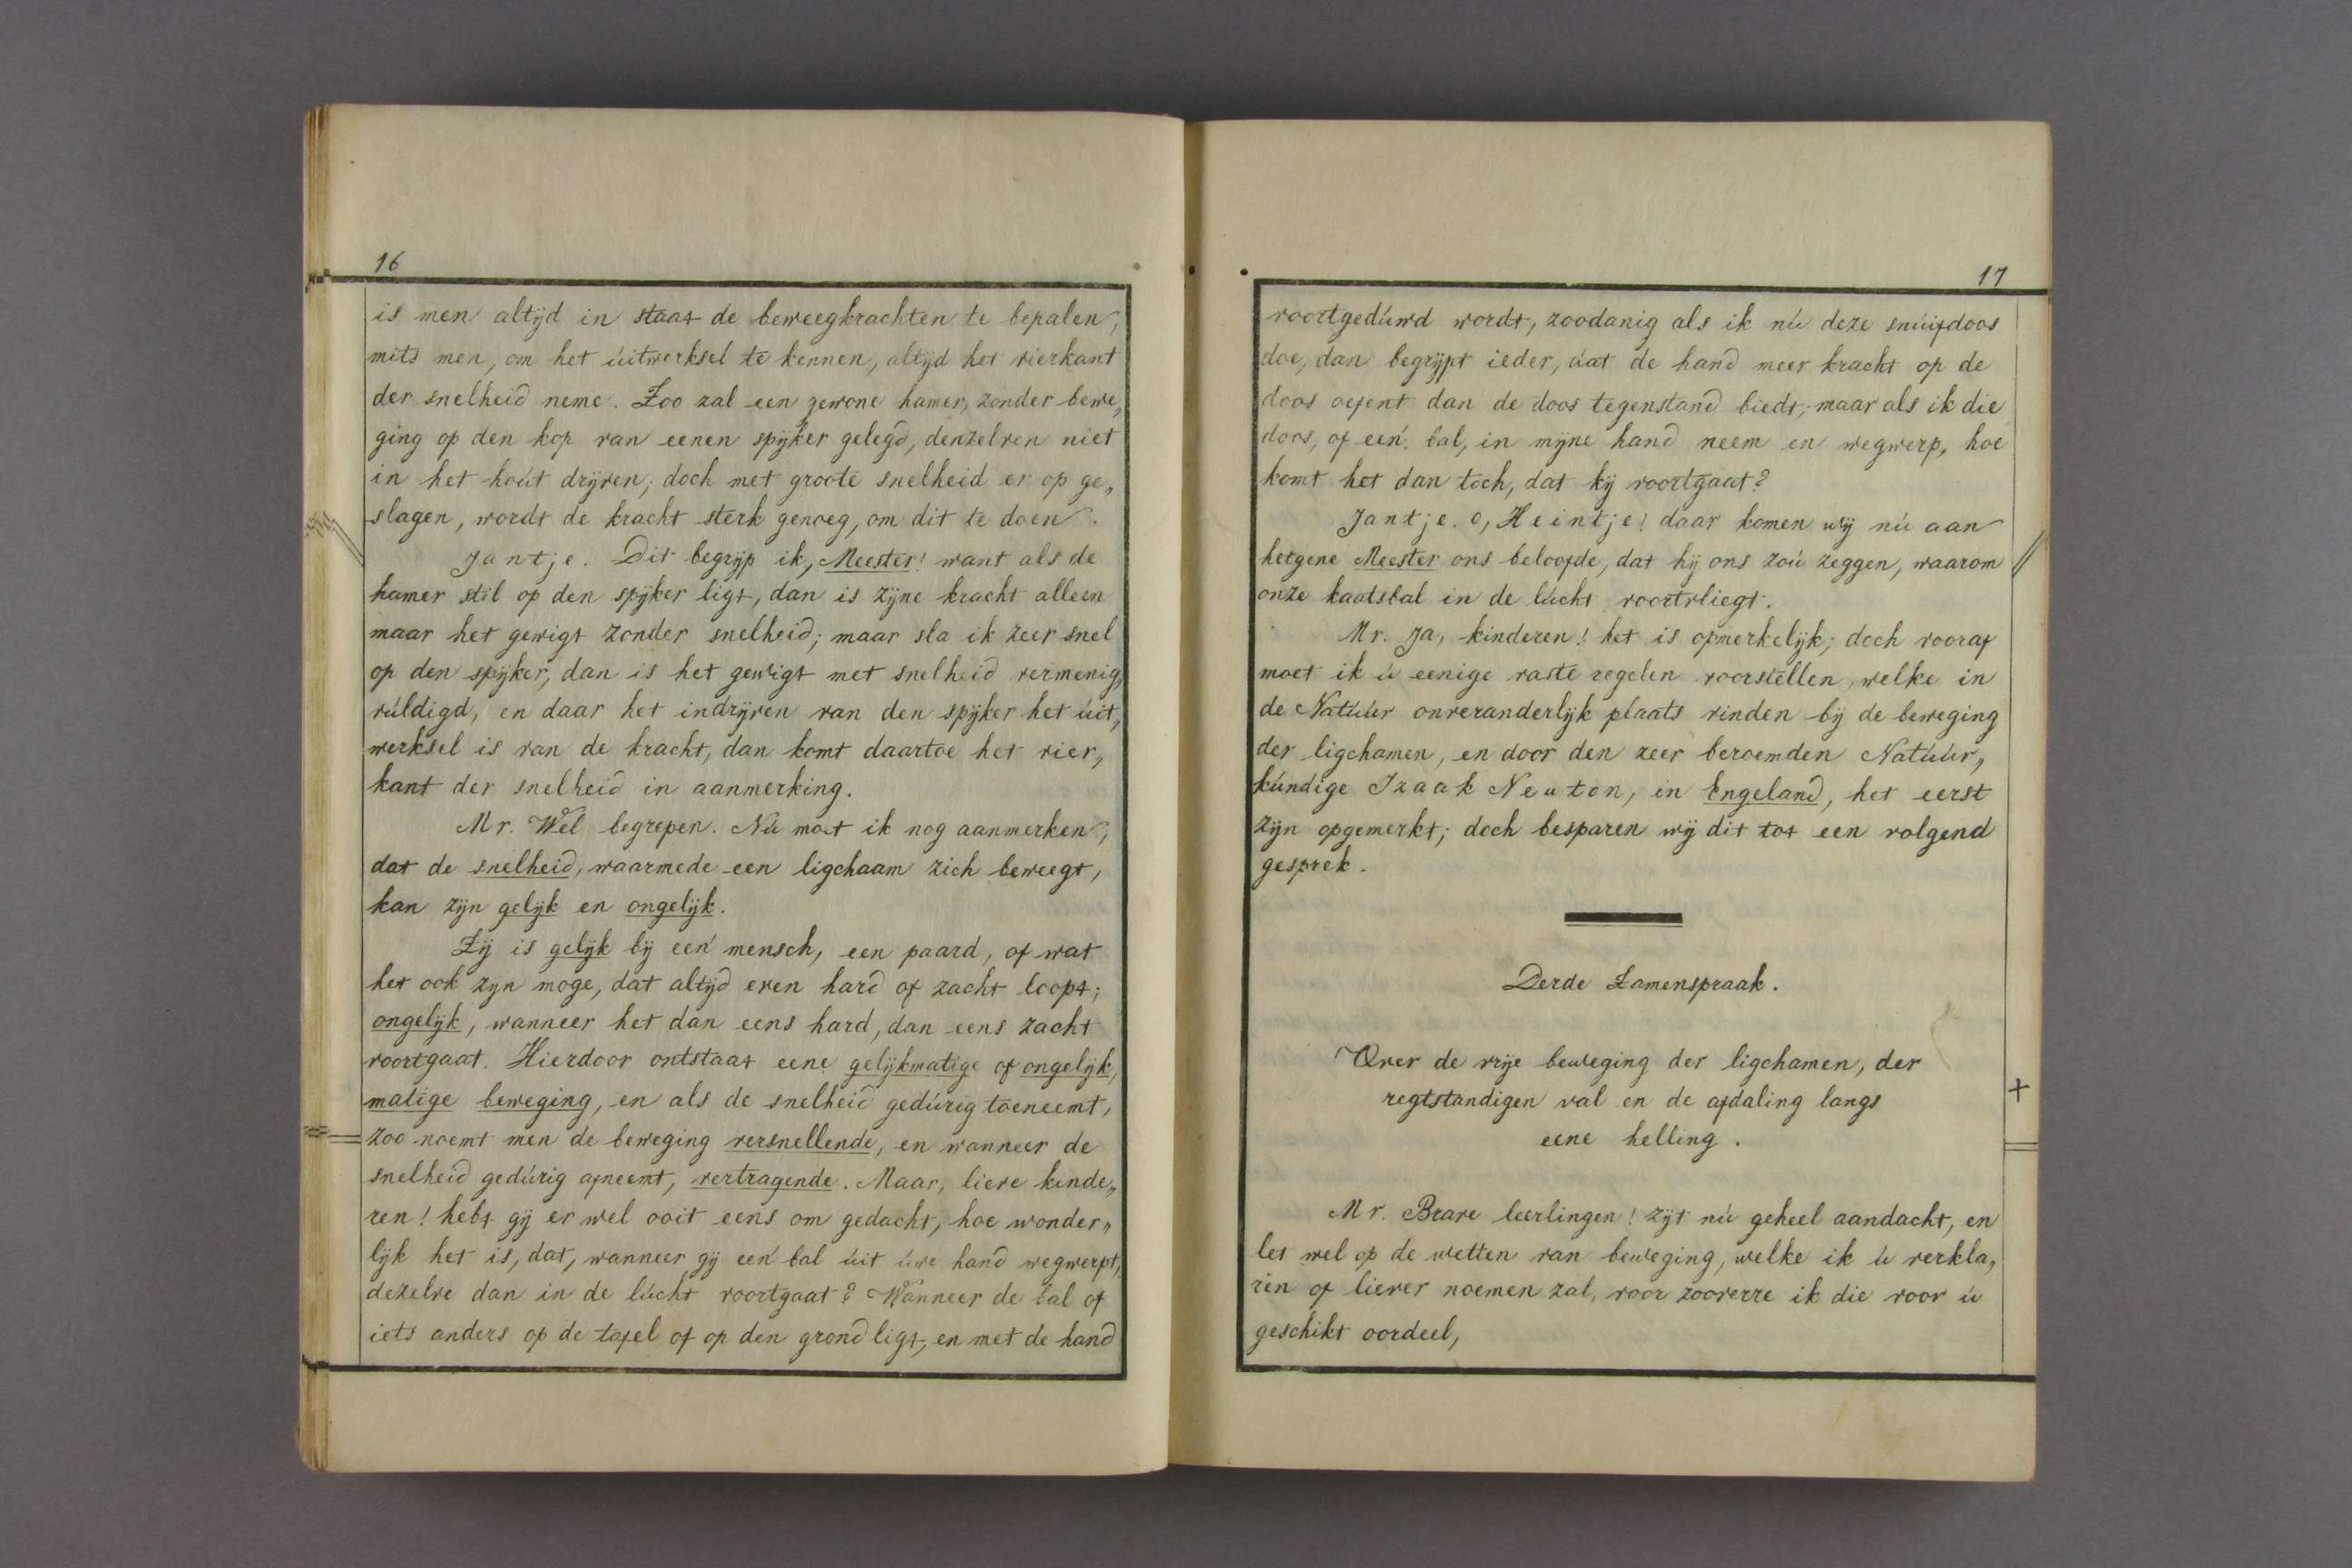 16
is men altijd in staat de beweegkrachten te bepalen,
mits men, om het úitwerksel te kennen, altijd het vierkant
der snelheid neme. Zoo zal een gewone hamer, zonder bewe„
ging op den kop van eenen spijker gelegd, denzelven niet
in het hoút drijven; doch met groote snelheid er op ge„
slagen, wordt de kracht sterk genoeg, om dit te doen.
Jantje. Dit begrijp ik, Meester! want als de
hamer stil op den spijker ligt, dan is zijne kracht alleen
maar het gewigt zonder snelheid; maar sla ik zeer snel
op den spijker, dan is het gewigt met snelheid vermenig„
vúldigd, en daar het indrijven van den spijker het úit„
werksel is van de kracht, dan komt daartoe het vier„
kant der snelheid in aanmerking.
Mr. Wel begrepen. Nú moet ik nog aanmerken,
dat de snelheid, waarmede een ligchaam zich beweegt,
kan zijn gelijk en ongelijk.
Zij is gelijk bij een mensch, een paard, of wat
het ook zijn moge, dat altijd even hard of zacht loopt;
ongelijk, wanneer het dan eens hard, dan eens zacht
voortgaat. Hierdoor ontstaat eene gelijkmatige of ongelijk„
matige beweging, en als de snelheid gedúrig toeneemt,
zoo noemt men de beweging versnellende, en wanneer de
snelheid gedúrig afneemt, vertragende. Maar, lieve kinde„
ren! hebt gij er wel ooit eens om gedacht, hoe wonder„
lijk het is, dat, wanneer gij een bal úit úwe hand wegwerpt,
dezelve dan in de lúcht voortgaat? Wanneer de bal of
iets anders op de tafel of op den grond ligt, en met de hand
17
voortgedúwd wordt, zoodanig als ik nú deze snúifdoos
doe, dan begrijpt ieder, dat de hand meer kracht op de
doos oefent dan de doos tegenstand biedt; maar als ik die
doos, of een bal, in mijne hand neem en wegwerp, hoe
komt het dan toch, dat hij voortgaat?
Jantje. O, Heintje! daar komen wij nú aan
hetgene Meester ons beloofde, dat hij ons zoú zeggen, waarom
onze kaatsbal in de lúcht voortvliegt.
Mr. Ja, kinderen! het is opmerkelijk; doch vooraf
moet ik ú eenige vaste regelen voorstellen, welke in
de Natúúr onveranderlijk plaats vinden bij de beweging
der ligchamen, en door den zeer beroemden Natúúr„
kúndige Izaak Neuton, in Engeland, het eerst
zijn opgemerkt; doch besparen wij dit tot een volgend
gesprek.
Derde Zamenspraak.
Over de vrije beweging der ligchamen, der
regtstandigen val en de afdaling langs
eene helling.
Mr. Brave leerlingen! zijt nú geheel aandacht, en
let wel op de wetten van beweging, welke ik ú verkla„
ren of liever noemen zal, voor zooverre ik die voor ú
geschikt oordeel,